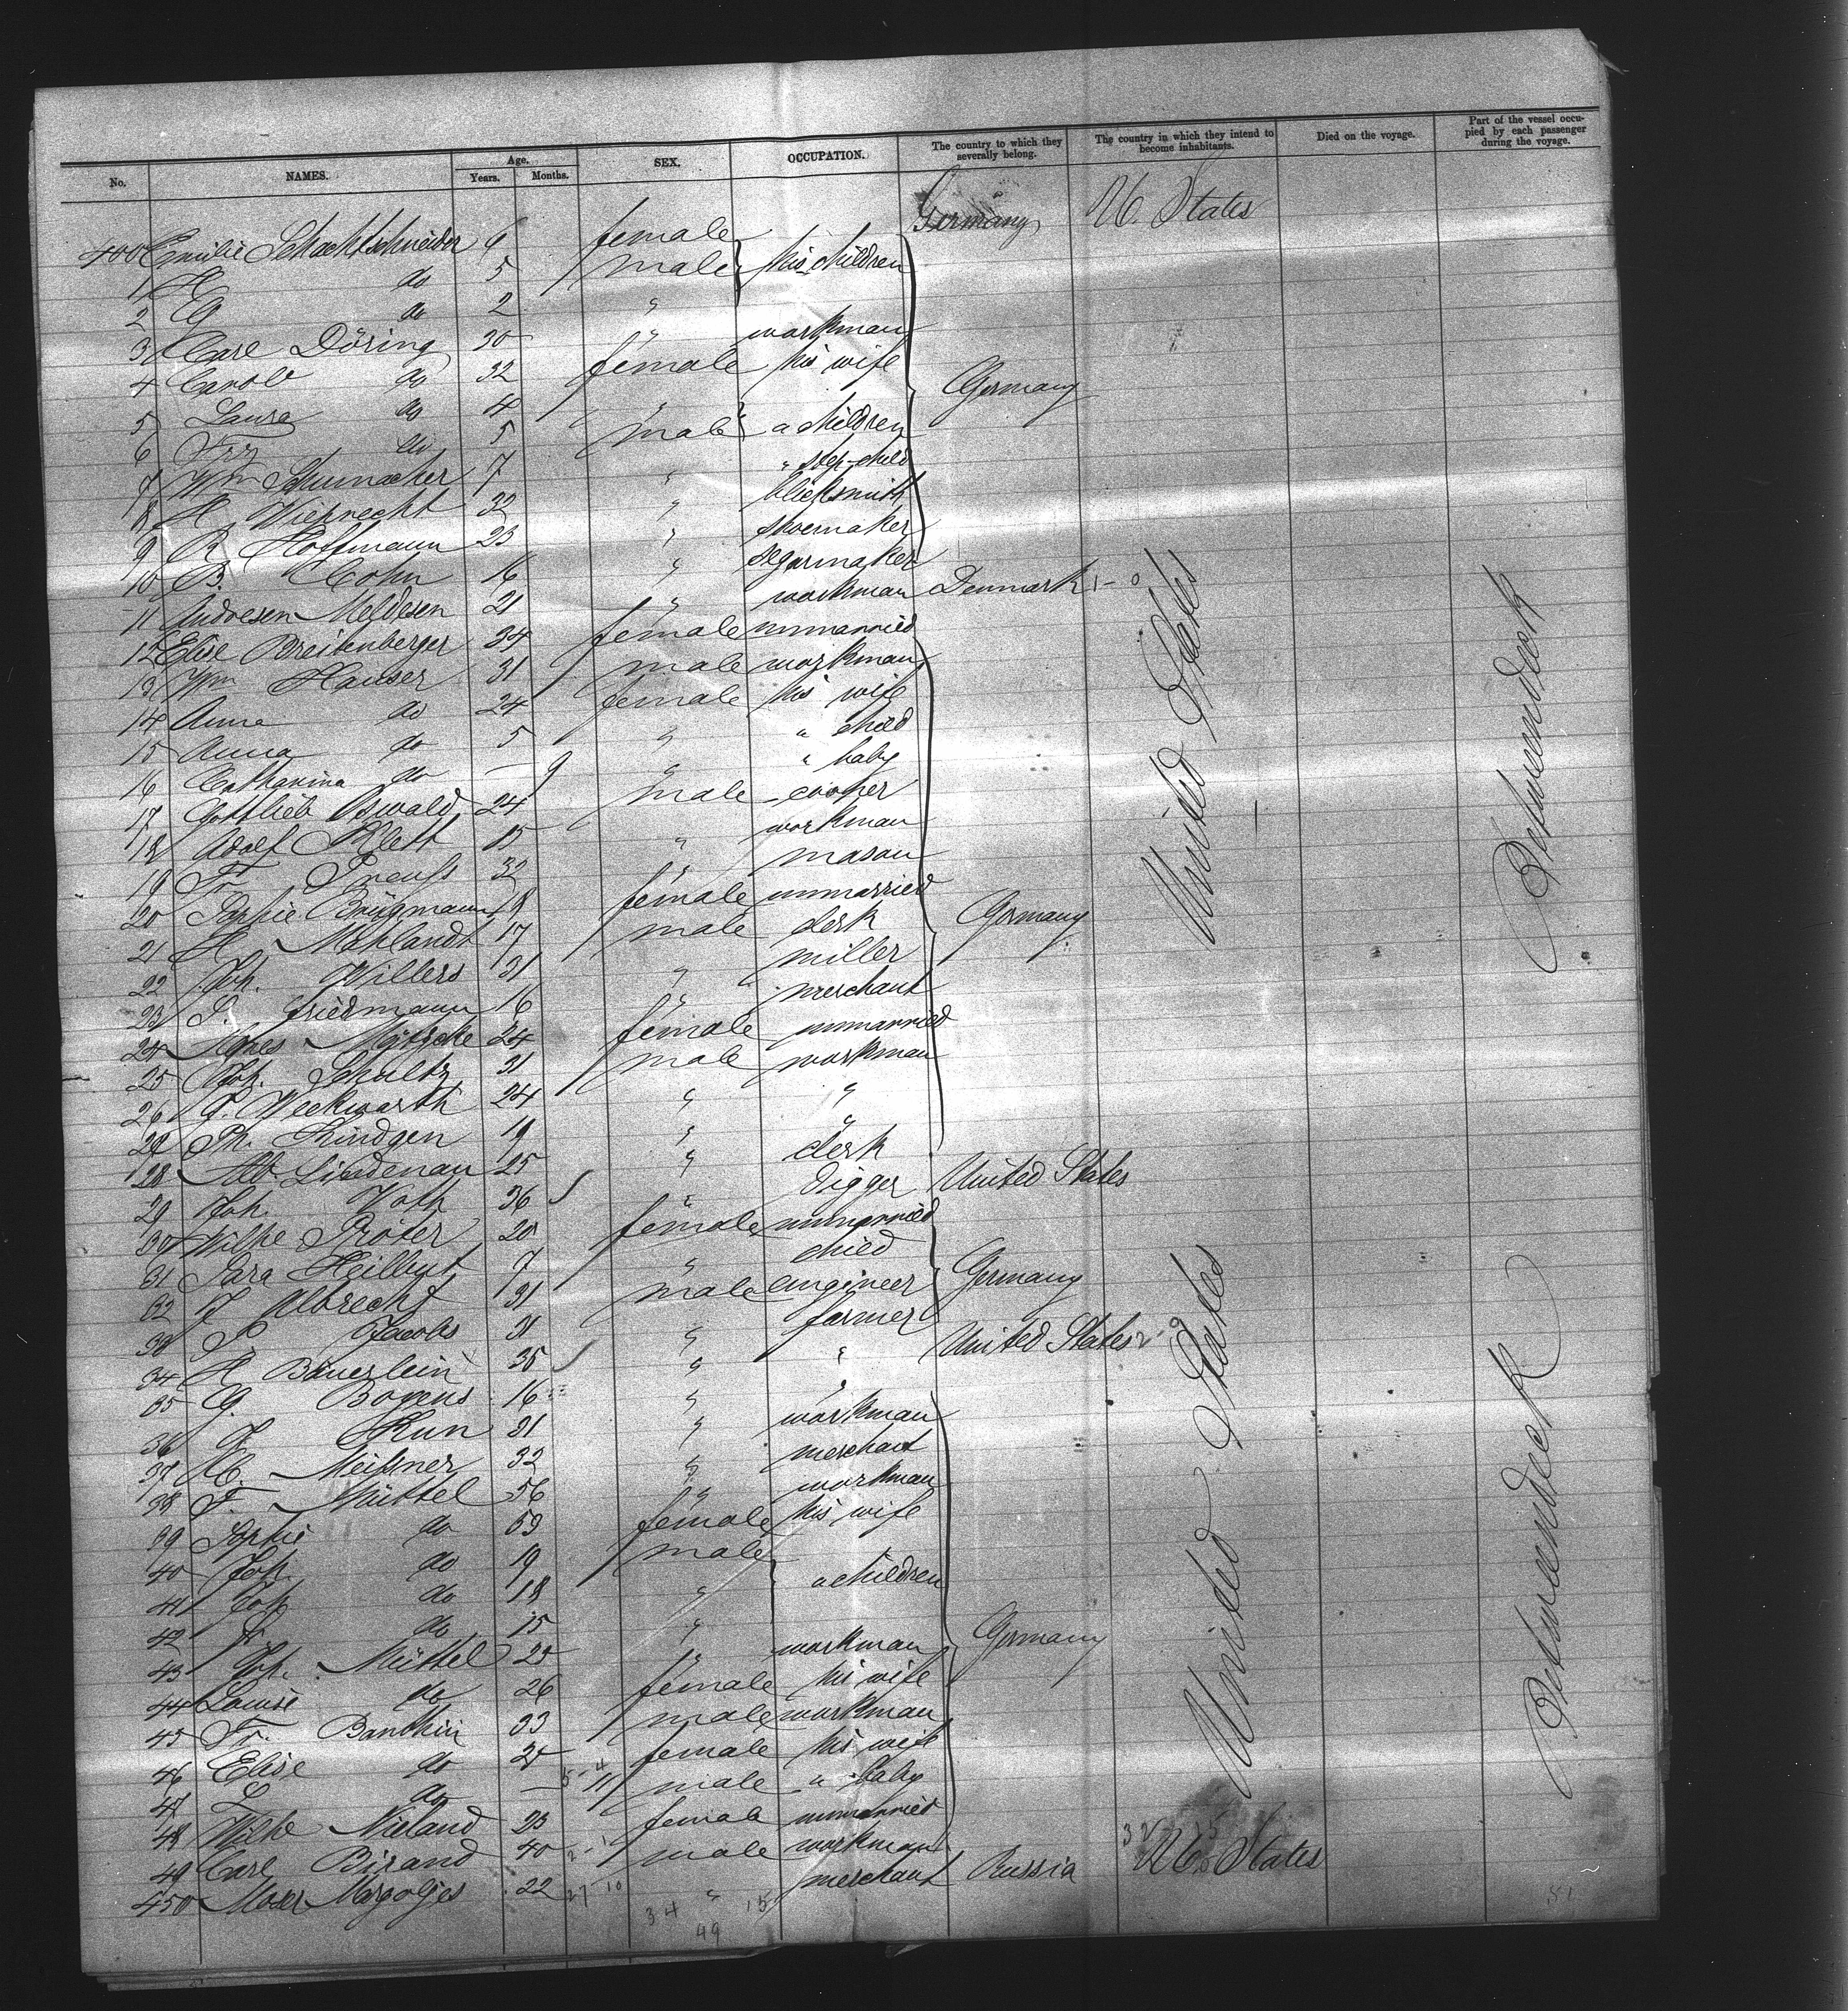 No. NAMES. Age. Years. Months. SEX. OCCUPATION. The country to which they severally belong. The country in which they intend to become inhabitants. Died on the voyage. Part of the vessel occupied by each passenger during the voyage.
400 Emilie Schachtschneider 6 female his children Germany U. States
1 H do 5 male
2 G do 2 "
3 Carl Döring 30 " workman
4 Carol do 32 female his wife Germany
5 Laura do 4 "
6 do 5 male " children
7 Wm Schumacher 7 " " step-child
8 H. Wieprecht 32 " blacksmith
9 R Hoffmann 23 " shoemaker
10 B. Cohn 16 " segarmaker
11 Andresen Meldesen 21 " workman Denmark 1-0
12 Elise Breitenberger 34 female unmarried
13 Wm Hauser 31 male workman
14 Anna do 24 female his wife
15 Anna do 5 " " child
16 Catharina do — 9 " " baby
17 Gottlieb Oswald 24 male cooper
18 Adolf Klett 15 " workman
19 Fr Preuß 32 " mason
20 Sophie Brügmann 18 female unmarried Germany
21 H. Mehlandt 17 male clerk
22 Joh. Willers 31 " miller
23 S. Friedmann 16 " merchant
24 Agnes 24 female unmarried
25 Joh. Schultz 31 male workman
26 G. Weckwarth 24 " "
27 Ph. Kindgen 19 " "
28 Alb. Lindenau 25 " clerk
29 Joh. Voth 36 " digger United States
30 Wilhe Pröter 20 female unmarried
31 Sara Heilbut 7 " child
32 J Albrecht 31 male engineer Germany
33 P. Jacobs 31 " farmer
34 H Bäuerlein 35 " " United States 2-0
35 G. Boyens 16 " "
36 J Kun 31 " workman
37 C. Meißner 32 " merchant
38 F. Müttel 56 " workman
39 Sophie do 53 female his wife
40 Joh. do 19 male " children
41 Joh do 18 "
42 do 15 "
43 Joh. Müttel 25 " workman Germany
44 Louise do 26 female his wife
45 Fr. Banthin 33 male workman
46 Elise do female his wife
47 L do — 11 male " baby
48 Wilhe Nieland 23 female unmarried
49 Carl Birand 40 male workman
450 Moser Margoljes 22 " merchant Russia U. States
United States
United States
Betweendeck
Betweendeck
27 10
34 15
49